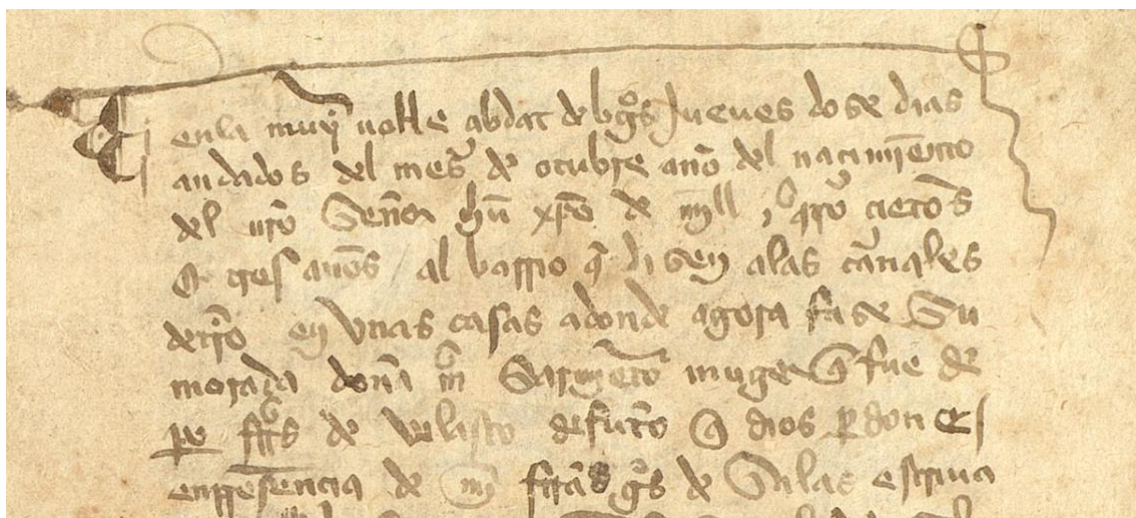 en la muy noble çibdat de burgos jueues dose dias
andados del mes de otubre año del naçimiento
del nro señor ihu xpo de mill e quatroçientos
e años al barrio que disen a las
dentro en vnas casas adonde agora fase su
morada doña mª sarmiento muger que fue de
pero frrs de velasco defunto que dios perdone
en presençia de mi frrands gs de salas escriua